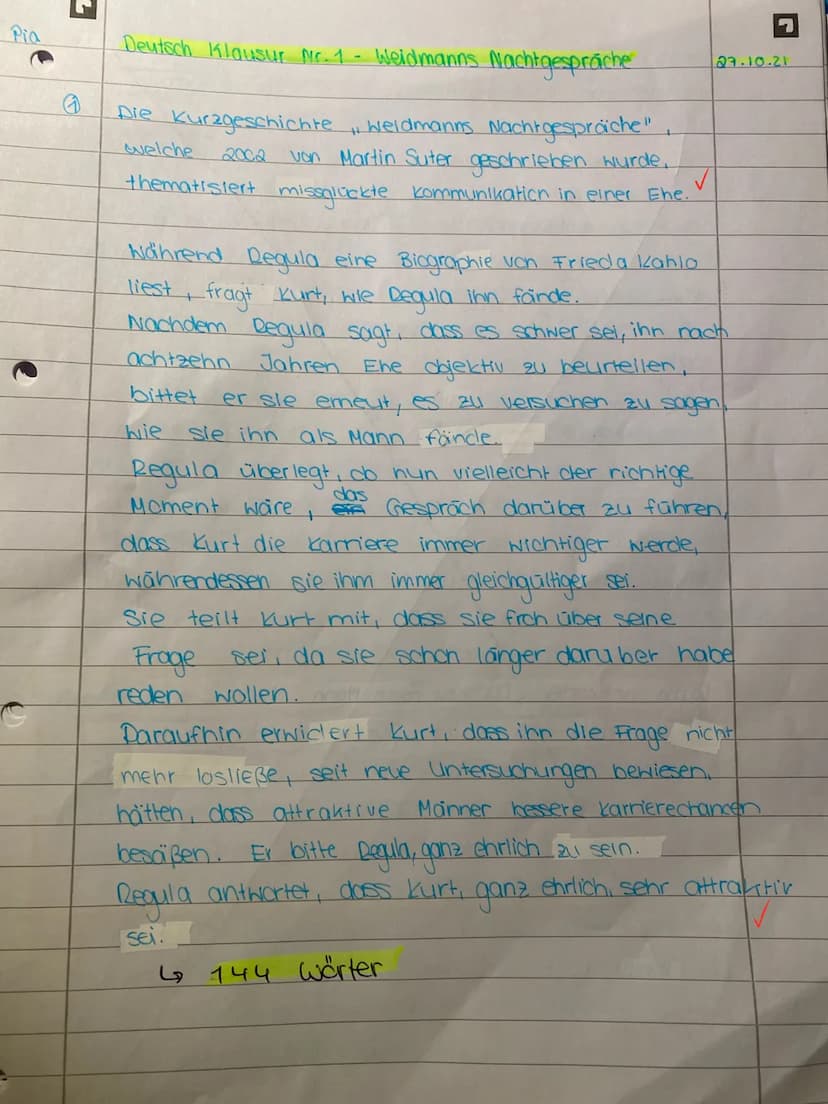 Pia
Deutsch Klausur Nr. 1 - Weidmanns Nachtgespräche
27.10.21
1 Die Kurzgeschichte „Weidmanns Nachtgespräche",
welche 2002 von Martin Suter geschrieben wurde,
thematisiert missglückte Kommunikation in einer Ehe. ✓
Während Regula eine Biographie von Frieda Kahlo
liest, fragt Kurt, wie Regula ihn fände.
Nachdem Regula sagt, dass es schwer sei, ihn nach
achtzehn Jahren Ehe objektiv zu beurteilen,
bittet er sie erneut, es zu versuchen zu sagen,
wie sie ihn als Mann fände.
Regula überlegt, ob nun vielleicht der richtige
Moment wäre, das Gespräch darüber zu führen,
dass Kurt die Karriere immer wichtiger werde,
währendessen sie ihm immer gleichgültiger sei.
Sie teilt Kurt mit, dass sie froh über seine
Frage sei, da sie schon länger darüber habe
reden wollen.
Daraufhin erwidert Kurt, dass ihn die Frage nicht
mehr losließe, seit neue Untersuchungen bewiesen
hätten, dass attraktive Männer bessere Karrierechancen
besäßen. Er bitte Regula, ganz ehrlich zu sein.
Regula antwortet, dass Kurt, ganz ehrlich, sehr attraktiv
sei. ✓
↳ 144 Wörter